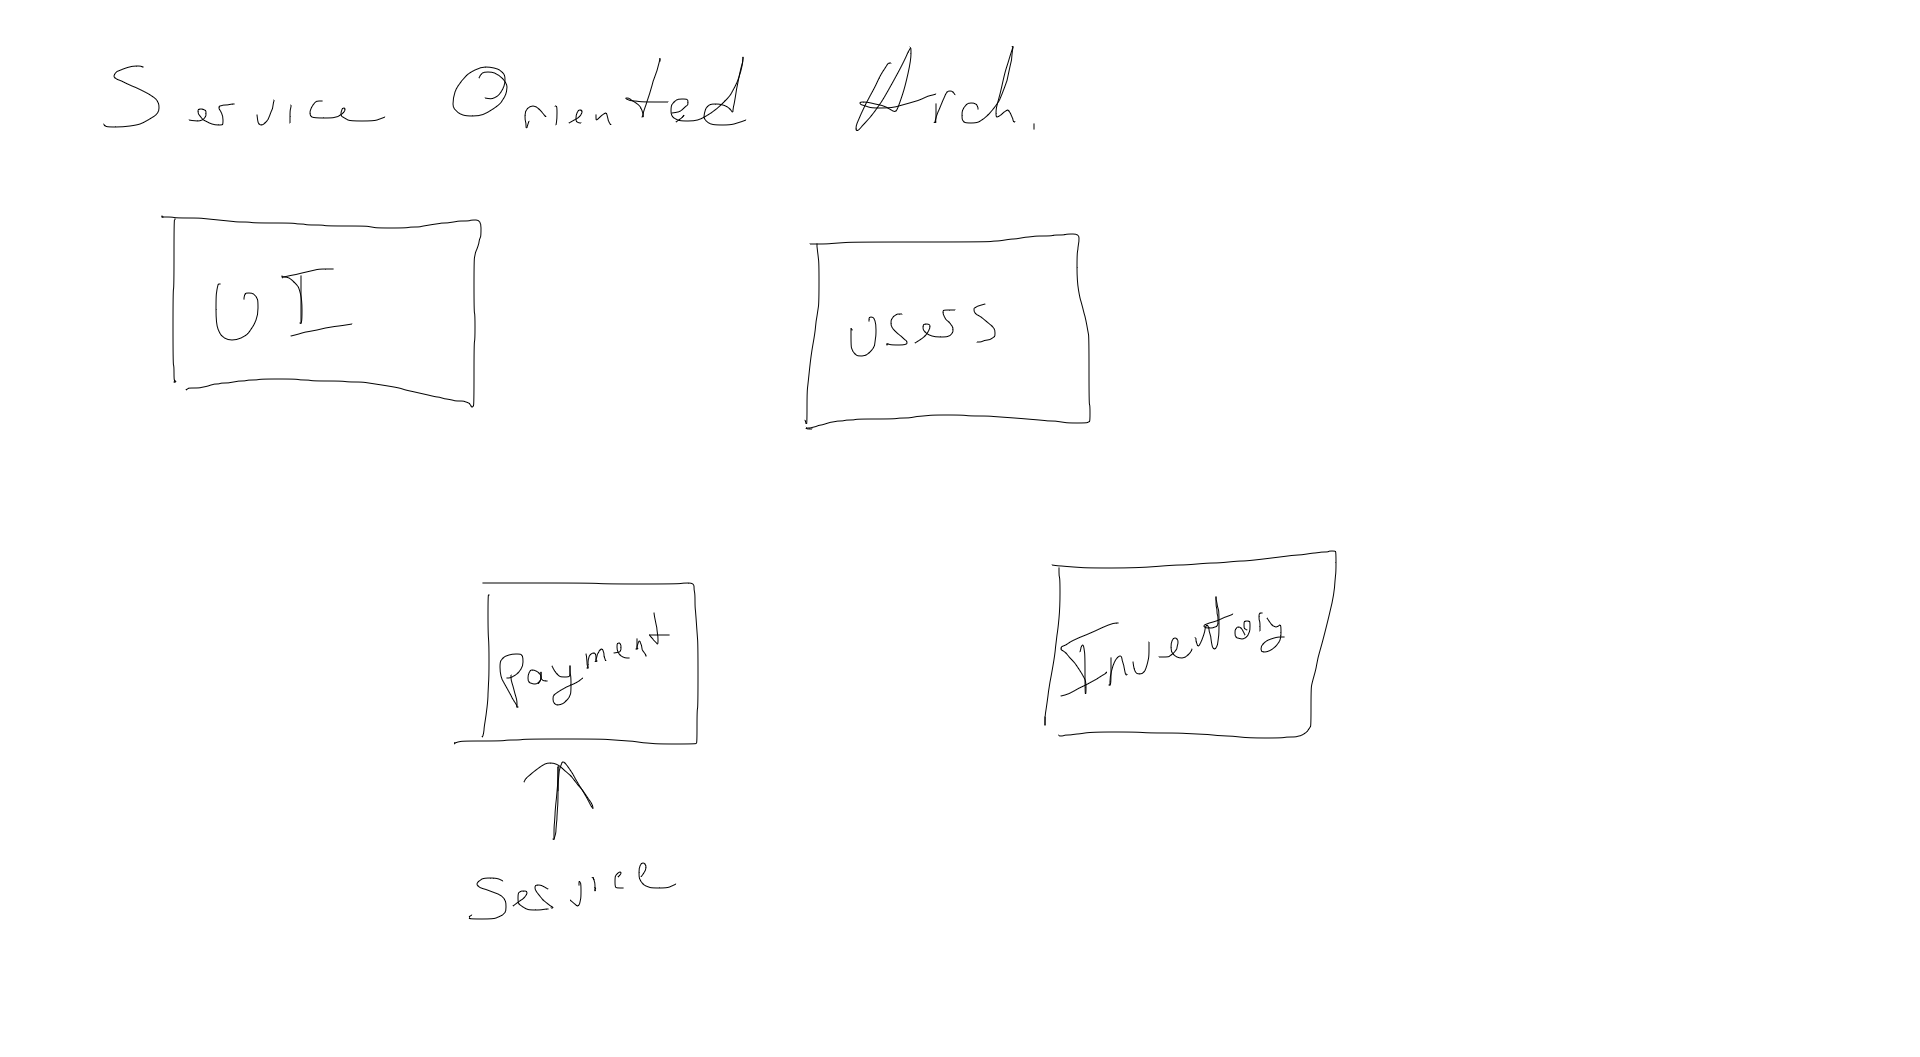 Service Oriented Arch.
UI
users
Payment
Inventory
Service